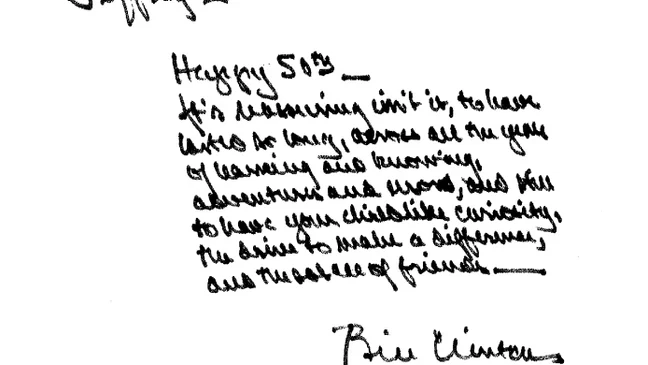 Jeffrey
Happy 50th —
It's reassuring isn't it, to have
lasted so long, across all the years
of learning and knowing,
adventures and and still
to have your childlike curiosity,
the drive to make a difference,
and the solace of friends. —
Bill Clinton